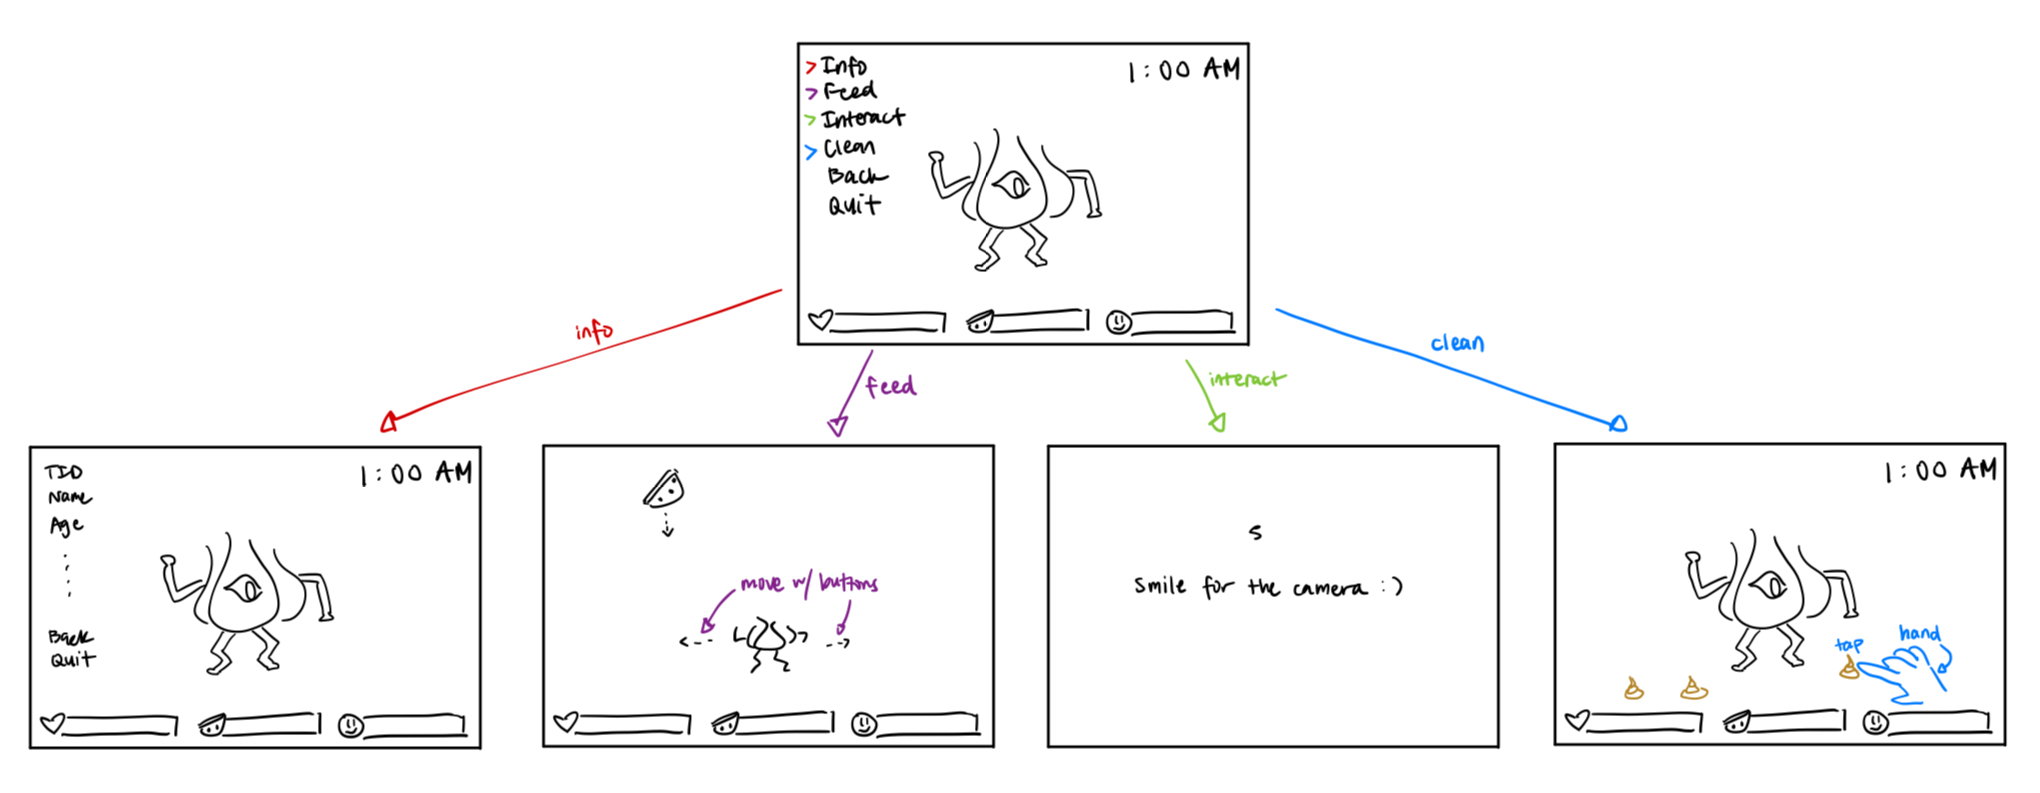 > Info
> Feed
> Interact
> Clean
Back
Quit
1:00 AM
info
feed
interact
clean
TID
Name
Age
Back
Quit
1:00 AM
move w/ buttons
5
Smile for the camera :)
1:00 AM
tap
hand